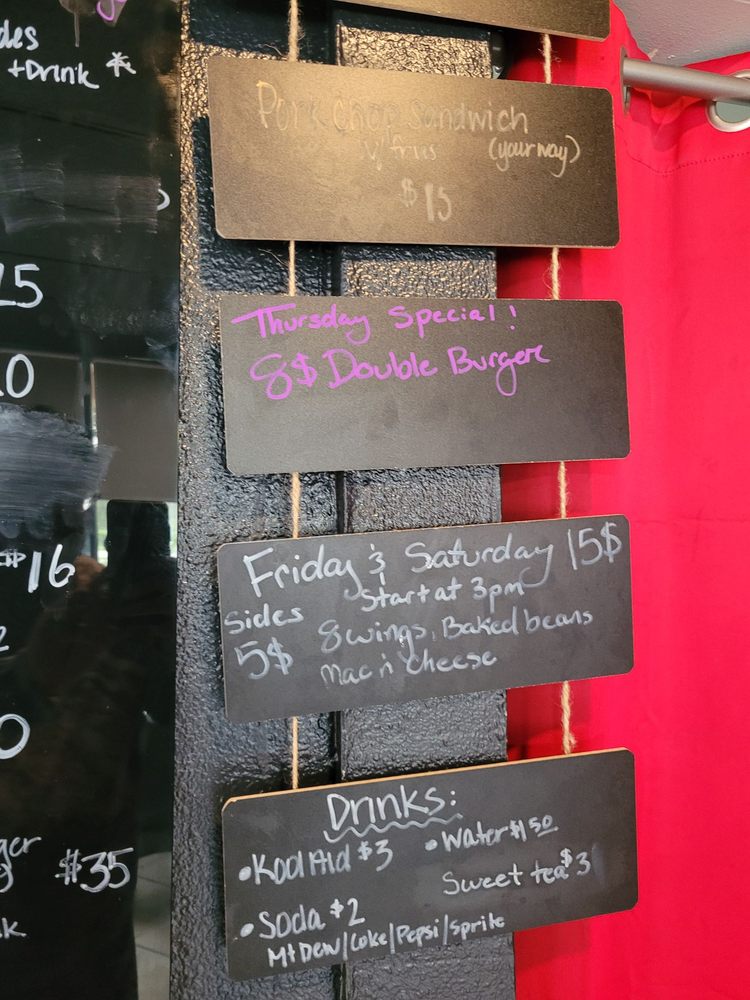 des
+Drink *
15
10
$16
0
$35
Pork Chop Sandwich
w/ fries (your way)
$15
Thursday Special!
8$ Double Burger
Friday & Saturday 15$
Start at 3pm
Sides
5$
8 wings, Baked beans
Mac n' cheese
Drinks:
• Kool Aid $3
• Water $1.50
Sweet tea $3
• Soda $2
Mt Dew/Coke/Pepsi/Sprite